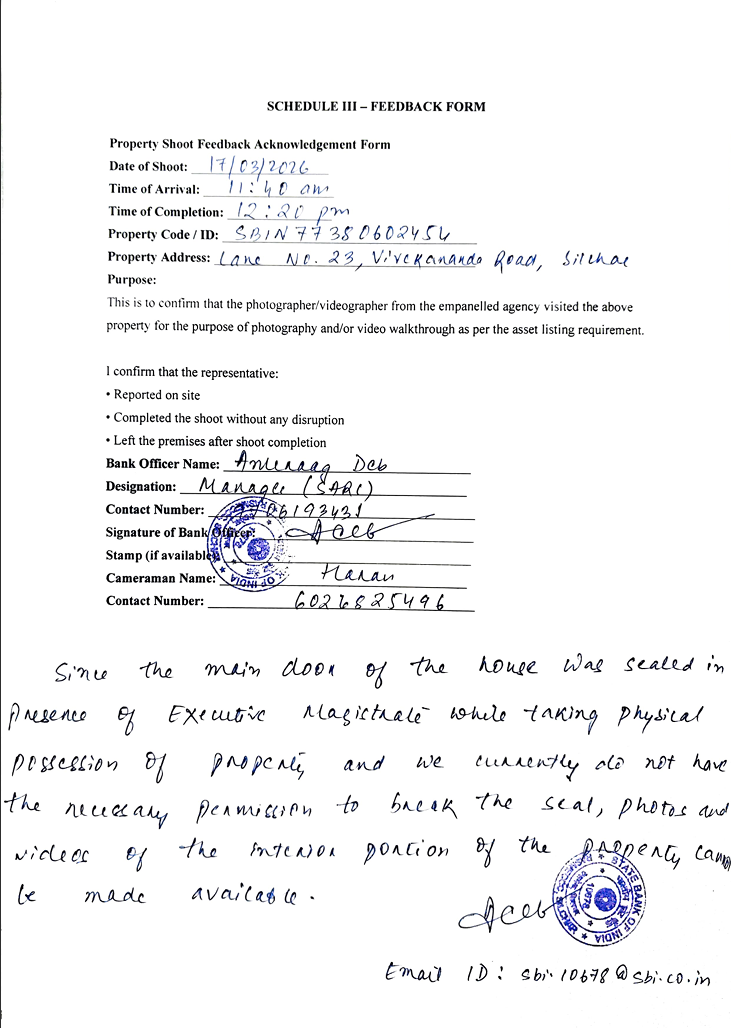 SCHEDULE III – FEEDBACK FORM
Property Shoot Feedback Acknowledgement Form
Date of Shoot: 17/03/2026
Time of Arrival: 11:40 am
Time of Completion: 12:20 pm
Property Code / ID: SBIN77380602454
Property Address: Lane No. 23, Vivekananda Road, Silchar
Purpose:
This is to confirm that the photographer/videographer from the empanelled agency visited the above
property for the purpose of photography and/or video walkthrough as per the asset listing requirement.
I confirm that the representative:
• Reported on site
• Completed the shoot without any disruption
• Left the premises after shoot completion
Bank Officer Name: Anuraag Deb
Designation: Manager (SARC)
Contact Number: 06193431
Signature of Bank Officer: ADeb
Stamp (if available)
Cameraman Name: Hanan
Contact Number: 6026825496
Since the main door of the house was sealed in
presence of Executive Magistrate while taking physical
possession of property and we currently do not have
the necessary permission to break the seal, photos and
videos of the interior portion of the property cannot
be made available.
ADeb
STATE BANK OF INDIA
10678
SILCHAR
Email ID: sbi.10678@sbi.co.in